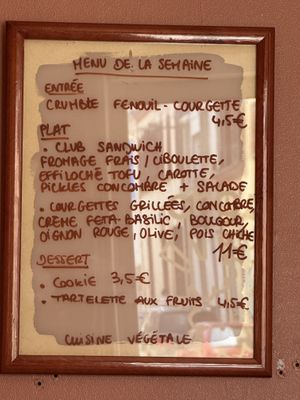 MENU DE LA SEMAINE
ENTRÉE
CRUMBLE FENOUIL - COURGETTE
4,5€
PLAT
• CLUB SANDWICH
FROMAGE FRAIS / CIBOULETTE,
EFFILOCHÉ TOFU, CAROTTE,
PICKLES CONCOMBRE + SALADE
• COURGETTES GRILLÉES, CONCOMBRE,
CRÈME FETA-BASILIC, BOULGOUR,
OIGNON ROUGE, OLIVE, POIS CHICHE
11€
DESSERT
• COOKIE 3,5€
• TARTELETTE AUX FRUITS 4,5€
CUISINE VÉGÉTALE